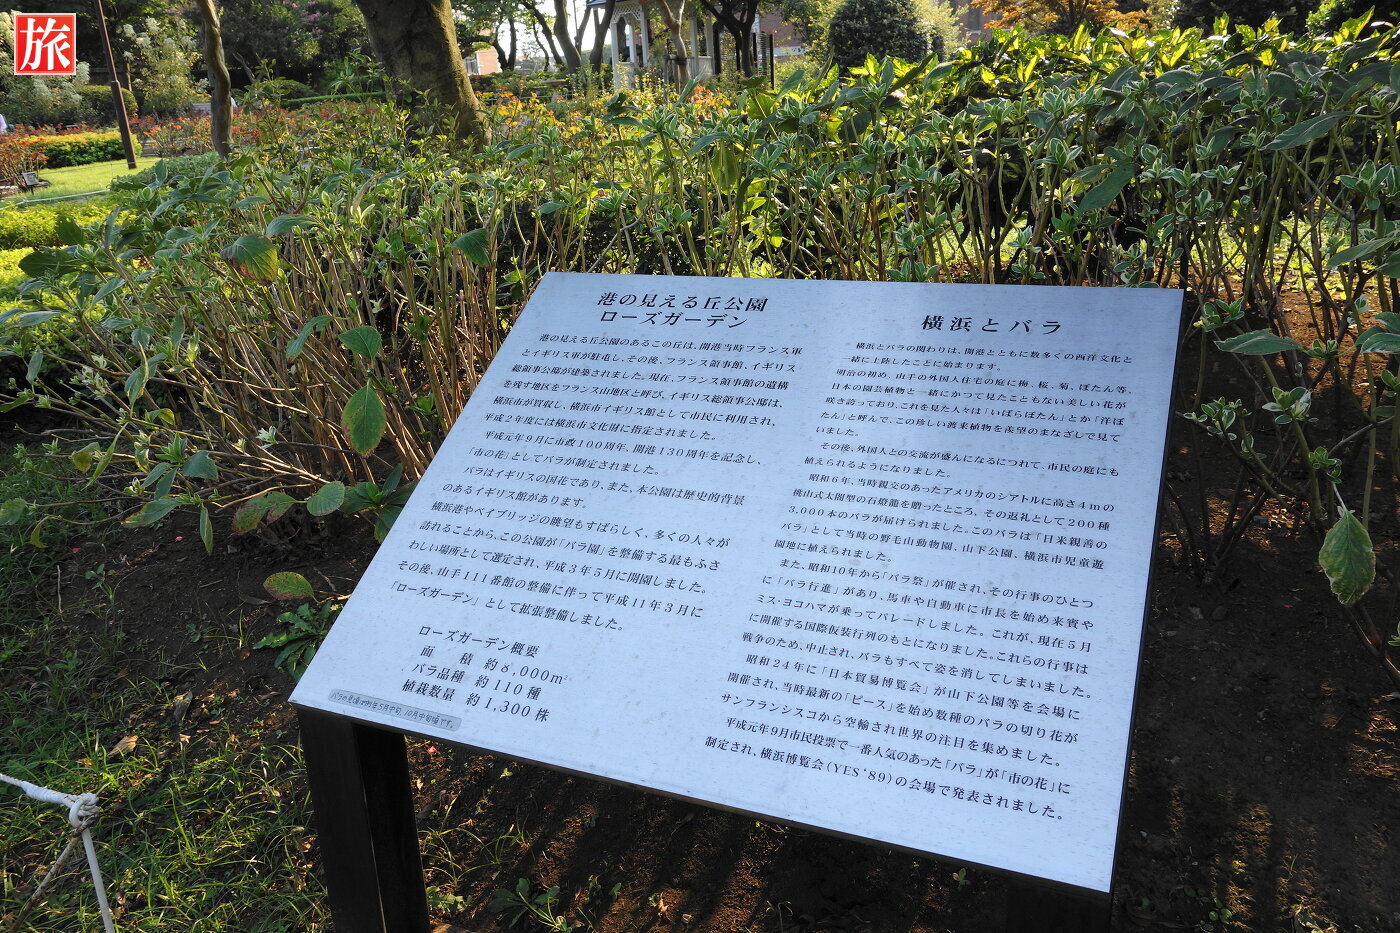 旅
港の見える丘公園
ローズガーデン
港の見える丘公園のあるこの丘は、開港当時フランス軍
とイギリス軍が駐屯し、その後、フランス領事館、イギリス
総領事公邸が建築されました。現在、フランス領事館の遺構
を残す地区をフランス山地区と呼び、イギリス総領事公邸は、
横浜市が買収し、横浜市イギリス館として市民に利用され、
平成2年度には横浜市文化財に指定されました。
平成元年9月に市政100周年、開港130周年を記念し、
「市の花」としてバラが制定されました。
バラはイギリスの国花であり、また、本公園は歴史的背景
のあるイギリス館があります。
横浜港やベイブリッジの眺望もすばらしく、多くの人々が
訪れることから、この公園が「バラ園」を整備する最もふさ
わしい場所として選定され、平成3年5月に開園しました。
その後、山手111番館の整備に伴って平成11年3月に
「ローズガーデン」として拡張整備しました。
ローズガーデン概要
面 積 約8,000m²
バラ品種 約110種
植栽数量 約1,300株
バラの見頃は例年5月中旬、10月中旬頃です。
横浜とバラ
横浜とバラの関わりは、開港とともに数多くの西洋文化と
一緒に上陸したことに始まります。
明治の初め、山手の外国人住宅の庭に梅、桜、菊、ぼたん等、
日本の園芸植物と一緒にかつて見たこともない美しい花が
咲き誇っており、これを見た人々は「いばらぼたん」とか「洋ぼ
たん」と呼んで、この珍しい渡来植物を羨望のまなざしで見て
いました。
その後、外国人との交流が盛んになるにつれて、市民の庭にも
植えられるようになりました。
昭和6年、当時親交のあったアメリカのシアトルに高さ4mの
桃山式太閤型の石燈籠を贈ったところ、その返礼として200種
3,000本のバラが届けられました。このバラは「日米親善の
バラ」として当時の野毛山動物園、山下公園、横浜市児童遊
園地に植えられました。
また、昭和10年から「バラ祭」が催され、その行事のひとつ
に「バラ行進」があり、馬車や自動車に市長を始め来賓や
ミス・ヨコハマが乗ってパレードしました。これが、現在5月
に開催する国際仮装行列のもとになりました。これらの行事は
戦争のため、中止され、バラもすべて姿を消してしまいました。
昭和24年に「日本貿易博覧会」が山下公園等を会場に
開催され、当時最新の「ピース」を始め数種のバラの切り花が
サンフランシスコから空輸され世界の注目を集めました。
平成元年9月市民投票で一番人気のあった「バラ」が「市の花」に
制定され、横浜博覧会(YES'89)の会場で発表されました。